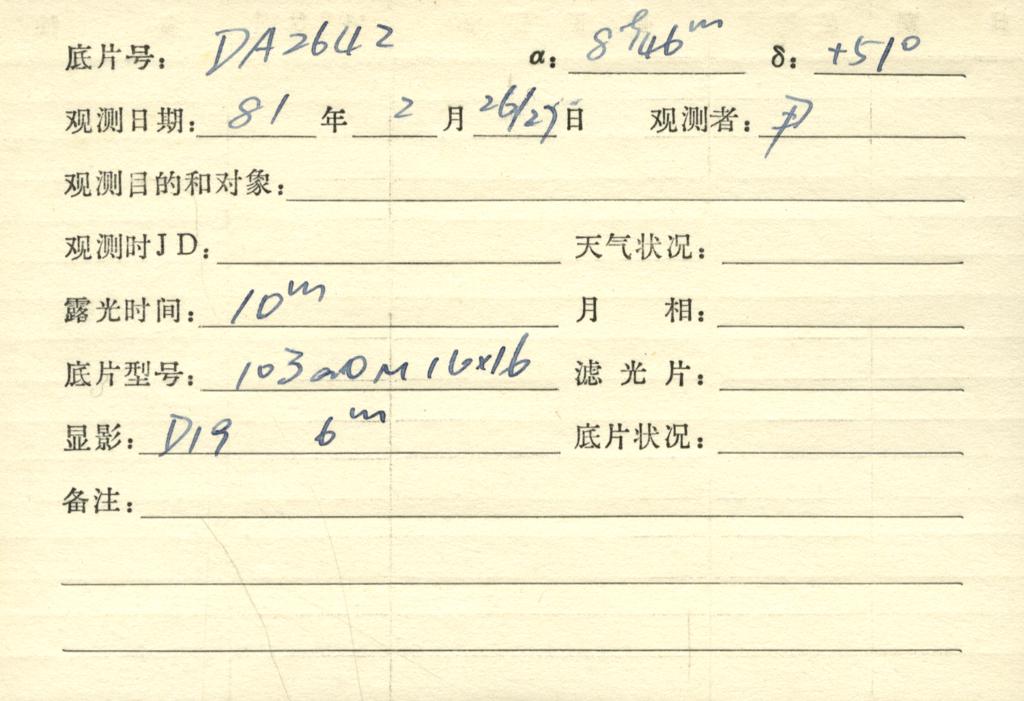 底片号: DA2642 α: 8h46m δ: +51°
观测日期: 81 年 2 月 26/27 日 观测者:
观测目的和对象:
观测时JD: 天气状况:
露光时间: 10m 月 相:
底片型号: 103aO M 16x16 滤 光 片:
显影: D19 6m 底片状况:
备注: